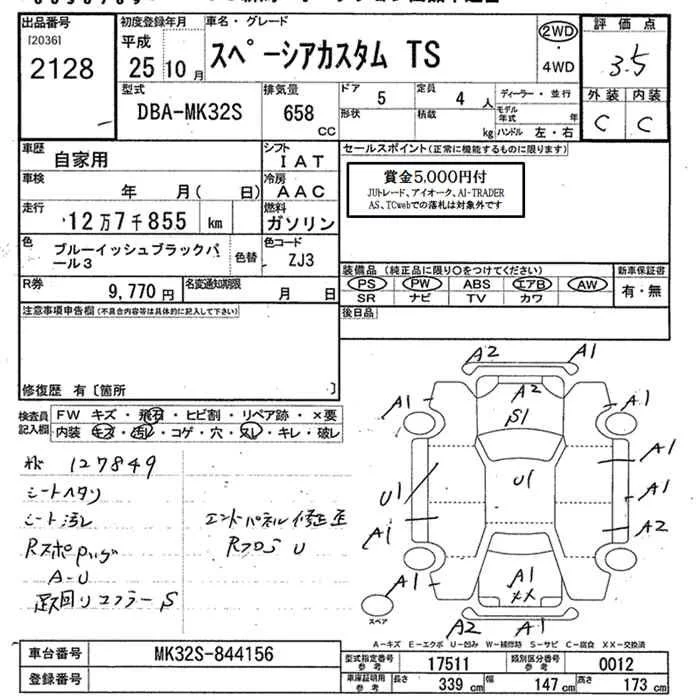 出品番号 初度登録年月 車名・グレード 評価点
[2036] 平成 スペーシアカスタム TS 2WD・4WD 3.5
2128 25 10月
外装 内装
C C
型式 排気量 ドア 定員 ディーラー・並行
DBA-MK32S 658cc 5 4人 モデル年式 年
形状 積載 kg ハンドル 左・右
車歴 シフト セールスポイント(正常に機能するものに限ります)
自家用 IAT
賞金5,000円付
JUトレード、アイオーク、AI-TRADER
AS、TCwebでの落札は対象外です
車検 冷房
年 月( 日) AAC
走行 燃料
12万7千855 km ガソリン
色 色替 色コード
ブルーイッシュブラックパール3 ZJ3
装備品(純正品に限り○をつけてください) 新車保証書
PS PW ABS エアB AW 有・無
SR ナビ TV カワ
R券 名変通知期限
9,770円 月 日
後日品
注意事項申告欄(不具合内容等は具体的に記入して下さい)
修復歴 有〔箇所 〕
検査員記入欄
FW キズ・飛石・ヒビ割・リペア跡・×要
内装・キズ・汚レ・コゲ・穴・スレ・キレ・破レ
127849
シートヘタリ
シート汚レ エンドパネル修正歪
Rスポ
RフロアU
A-U
足回リマフラーS
A2 A1
A1 A2 A1
S1
A1
U1 U1 A1
A1 A2
A1 A1 A1
XX
スペア
A2 A1
A-キズ E-エクボ U-凹み W-補修跡 S-サビ C-腐食 XX-交換済
車台番号 MK32S-844156 型式指定番号参考 17511 類別区分番号参考 0012
登録番号 車庫証明用参考 長さ 339cm 幅 147cm 高さ 173cm